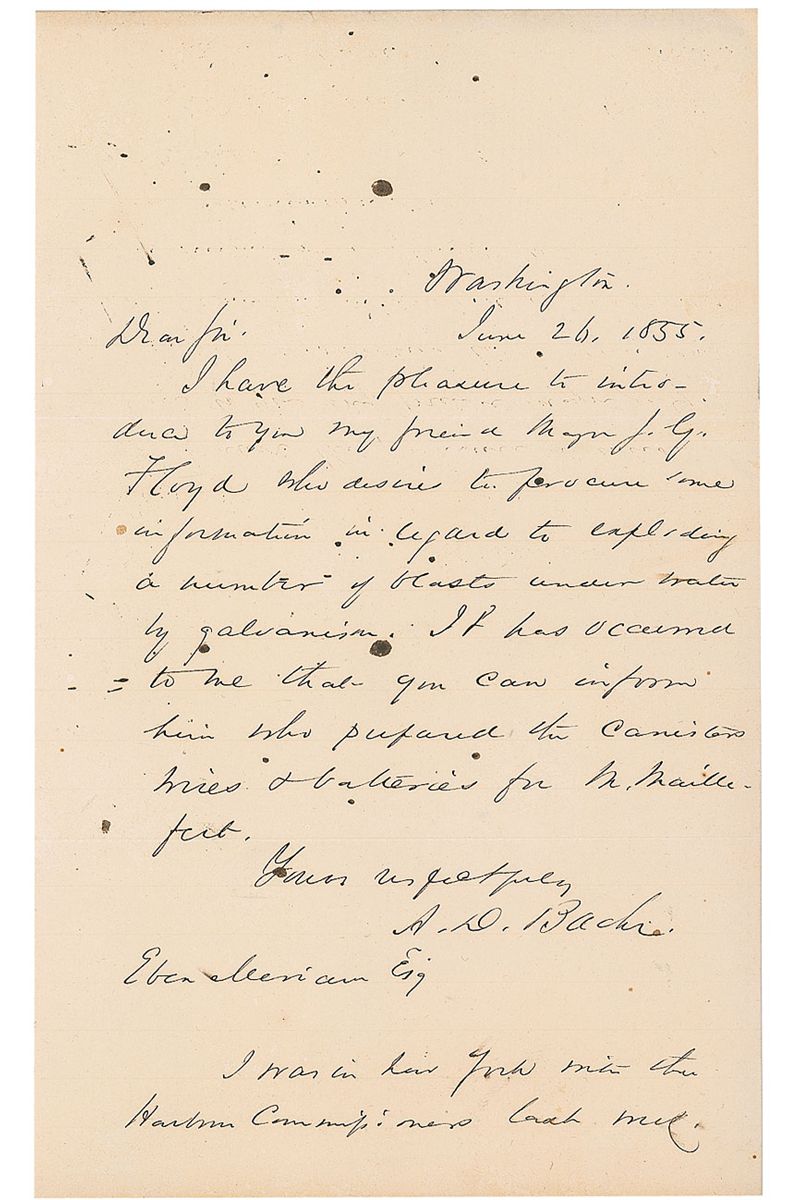 Washington.
Dear Sir. June 26, 1855.
I have the pleasure to intro-
duce to you my friend Major J. G.
Floyd who desires to procure some
information in regard to exploding
a number of blasts under water
by galvanism. It has occurred
to me that you can inform
him who prepared the canisters
wires & batteries for M. Maille-
fert.
Yours respectfully
A. D. Bache.
Eben Meriam Esq
I was in New York with the
Harbor Commissioners last week.